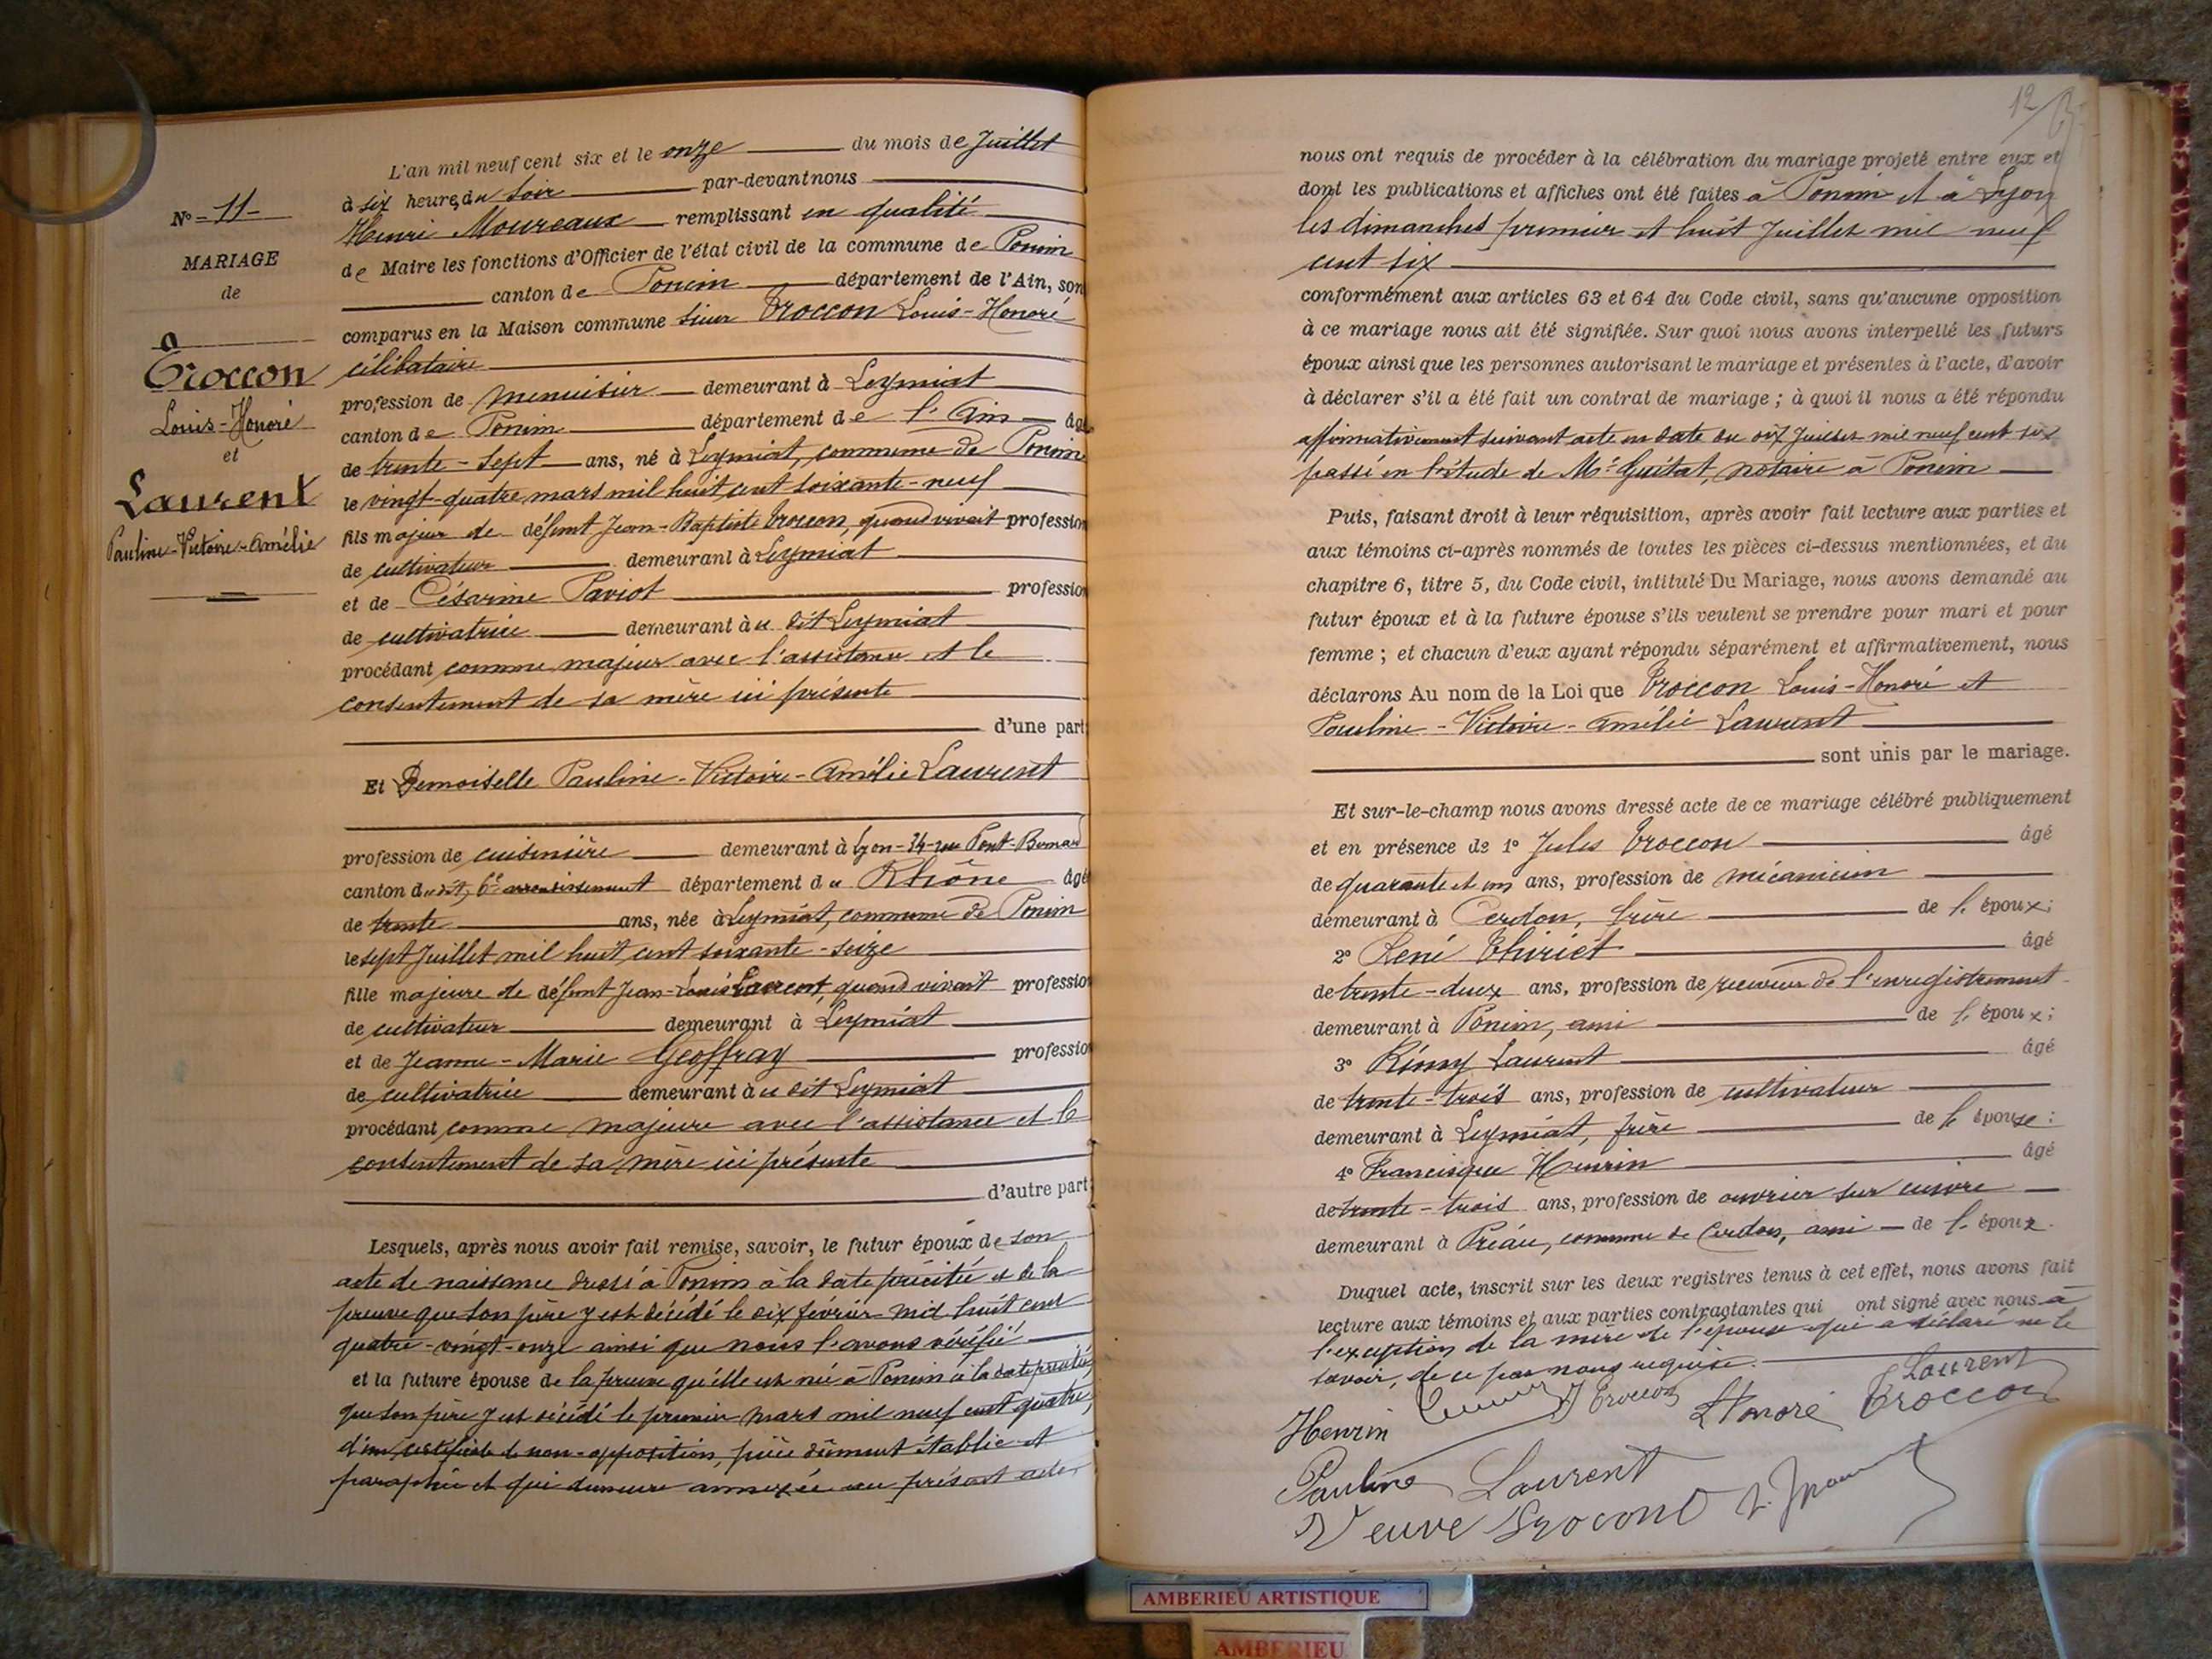 N° - 11 -
MARIAGE
de
Troccon
Louis-Honoré
et
Laurent
Pauline-Victoire-Amélie
L'an mil neuf cent six et le onze du mois de Juillet
à six heures du soir par-devant nous
Henri Moureaux remplissant en qualité
de Maire les fonctions d'Officier de l'état civil de la commune de Poncin
canton de Poncin département de l'Ain, son
comparus en la Maison commune sieur Troccon Louis-Honoré
célibataire
profession de menuisier demeurant à Leymiat
canton de Poncin département de l'Ain âgé
de trente-sept ans, né à Leymiat, commune de Poncin
le vingt-quatre mars mil huit cent soixante-neuf
fils majeur de défunt Jean-Baptiste Troccon, quand vivait profession
de cultivateur demeurant à Leymiat
et de Césarine Paviot profession
de cultivatrice demeurant àu dit Leymiat
procédant comme majeur avec l'assistance et le
consentement de sa mère ici présente
d'une part
Et Demoiselle Pauline-Victoire-Amélie Laurent
profession de cuisinière demeurant à Lyon-34-rue
canton dudit, 6e arrondissement département du Rhône âgée
de trente ans, née à Leymiat, commune de Poncin
le sept Juillet mil huit cent soixante-seize
fille majeure de défunt Jean-Louis Laurent, quand vivait profession
de cultivateur demeurant à Leymiat
et de Jeanne-Marie Geoffray profession
de cultivatrice demeurant àu dit Leymiat
procédant comme majeure avec l'assistance et le
consentement de sa mère ici présente
d'autre part
Lesquels, après nous avoir fait remise, savoir, le futur époux de son
acte de naissance dressé à Poncin à la date précitée et de la
preuve que son père y est décédé le dix février mil huit cent
quatre-vingt-onze ainsi que nous l'avons vérifié
et la future épouse de la preuve qu'elle est née à Poncin à la date précitée,
que son père y est décédé le premier mars mil neuf cent quatre,
d'un certificat de non-opposition, pièce dûment établie et
paraphée et qui demeure annexée au présent acte
12
nous ont requis de procéder à la célébration du mariage projeté entre eux et
dont les publications et affiches ont été faites à Poncin et à Lyon
les dimanches premier et huit Juillet mil neuf
cent six
conformément aux articles 63 et 64 du Code civil, sans qu'aucune opposition
à ce mariage nous ait été signifiée. Sur quoi nous avons interpellé les futurs
époux ainsi que les personnes autorisant le mariage et présentes à l'acte, d'avoir
à déclarer s'il a été fait un contrat de mariage ; à quoi il nous a été répondu
affirmativement suivant acte en date du dix Juillet mil neuf cent six
passé en l'étude de Me Guétat, notaire à Poncin
Puis, faisant droit à leur réquisition, après avoir fait lecture aux parties et
aux témoins ci-après nommés de toutes les pièces ci-dessus mentionnées, et du
chapitre 6, titre 5, du Code civil, intitulé Du Mariage, nous avons demandé au
futur époux et à la future épouse s'ils veulent se prendre pour mari et pour
femme ; et chacun d'eux ayant répondu séparément et affirmativement, nous
déclarons Au nom de la Loi que Troccon Louis-Honoré et
Pauline-Victoire-Amélie Laurent
sont unis par le mariage.
Et sur-le-champ nous avons dressé acte de ce mariage célébré publiquement
et en présence de 1° Jules Troccon âgé
de quarante et un ans, profession de mécanicien
demeurant à Cerdon, frère de l'époux ;
2° René Thiriet âgé
de trente-deux ans, profession de receveur de l'enregistrement
demeurant à Poncin, ami de l'époux ;
3° Rémy Laurent âgé
de trente-trois ans, profession de cultivateur
demeurant à Leymiat, frère de l'épouse :
4° Francisque Henrin âgé
de trente-trois ans, profession de ouvrier sur cuivre
demeurant à Préau, commune de Cerdon, ami de l'époux.
Duquel acte, inscrit sur les deux registres tenus à cet effet, nous avons fait
lecture aux témoins et aux parties contractantes qui ont signé avec nous à
l'exception de la mère de l'épouse qui a déclaré ne le
savoir, de ce par nous requise.
Laurent
Henrin J Troccon Honoré Troccon
Pauline Laurent
Veuve Trocond
AMBERIEU ARTISTIQUE
AMBERIEU